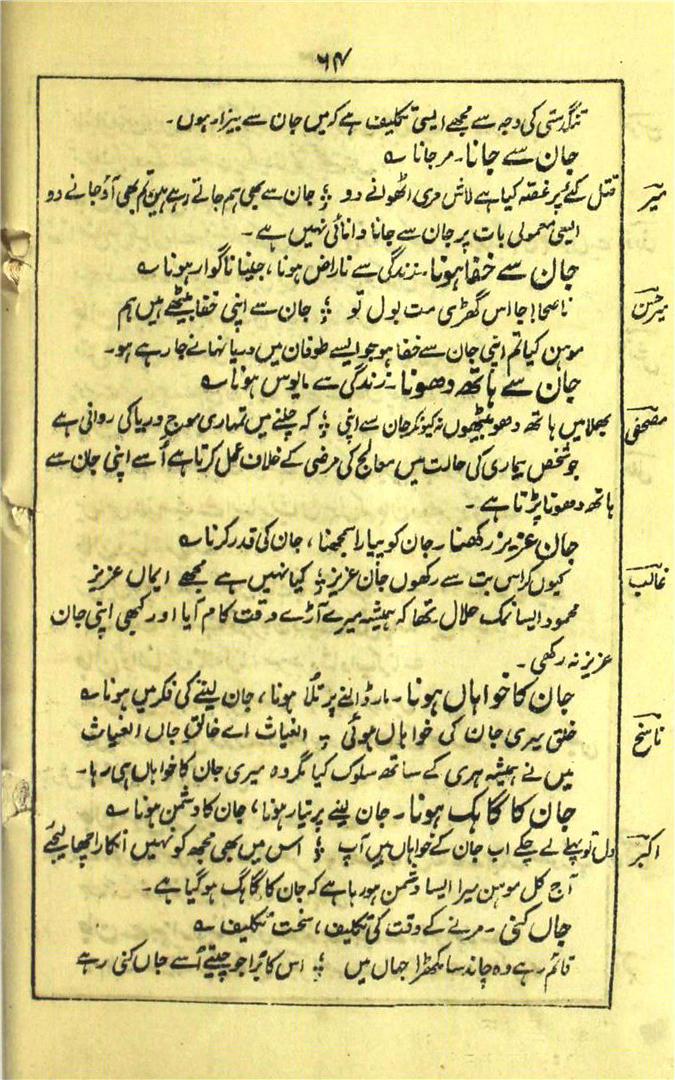 ۶۴
تنگدستی کی وجہ سے مجھے ایسی تکلیف ہے کہ میں جان سے بیزار ہوں۔
جان سے جانا۔ مرجانا ؎
میر
قتل کئے پر غصہ کیا ہے لاش مری اٹھوانے دو ؛ جان سے بھی ہم جاتے رہے ہیں تم بھی آؤ جانے دو
ایسی معمولی بات پر جان سے جانا دانائی نہیں ہے۔
جان سے خفا ہونا۔ زندگی سے ناراض ہونا، جینا ناگوار ہونا ؎
میر حسن
ناصحا! جا اس گھڑی مت بول تو ؛ جان سے اپنی خفا بیٹھے ہیں ہم
موہن کیا تم اپنی جان سے خفا ہو جو ایسے طوفان میں دریا نہانے جا رہے ہو۔
جان سے ہاتھ دھونا۔ زندگی سے مایوس ہونا ؎
مصحفی
بھلا میں ہاتھ دھو بیٹھوں نہ کیونکر جان سے اپنی ؛ کہ چلنے میں تمہاری موج دریا کی روانی ہے
جو شخص بیماری کی حالت میں معالج کی مرضی کے خلاف عمل کرتا ہے اُسے اپنی جان سے
ہاتھ دھونا پڑتا ہے۔
جان عزیز رکھنا۔ جان کو پیارا سمجھنا، جان کی قدر کرنا ؎
غالب
کیوں کر اس بت سے رکھوں جان عزیز ؛ کیا نہیں ہے مجھے ایماں عزیز
محمود ایسا نمک حلال تھا کہ ہمیشہ میرے آڑے وقت کام آیا اور کبھی اپنی جان
عزیز نہ رکھی۔
جان کا خواہاں ہونا۔ مار ڈالنے پر تُلا ہونا، جان لینے کی فکر میں ہونا ؎
ناسخ
خلق میری جان کی خواہاں ہوئی ؛ الغیاث اے خالقِ جاں الغیاث
میں نے ہمیشہ ہری کے ساتھ سلوک کیا مگر وہ میری جان کا خواہاں ہی رہا۔
جان کا گاہک ہونا۔ جان لینے پر تیار ہونا، جان کا دشمن ہونا ؎
اکبر
دل تو پہلے لے چکے اب جان کے خواہاں ہیں آپ ؛ اس میں بھی مجھ کو نہیں انکار اچھا لیجئے
آج کل موہن میرا ایسا دشمن ہو رہا ہے کہ جان کا گاہک ہو گیا ہے۔
جاں کنی۔ مرنے کے وقت کی تکلیف، سخت تکلیف ؎
قائم رہے وہ چاند سا مکھڑا جہاں میں ؛ اس کا بُرا جو چیتے اُسے جاں کنی رہے